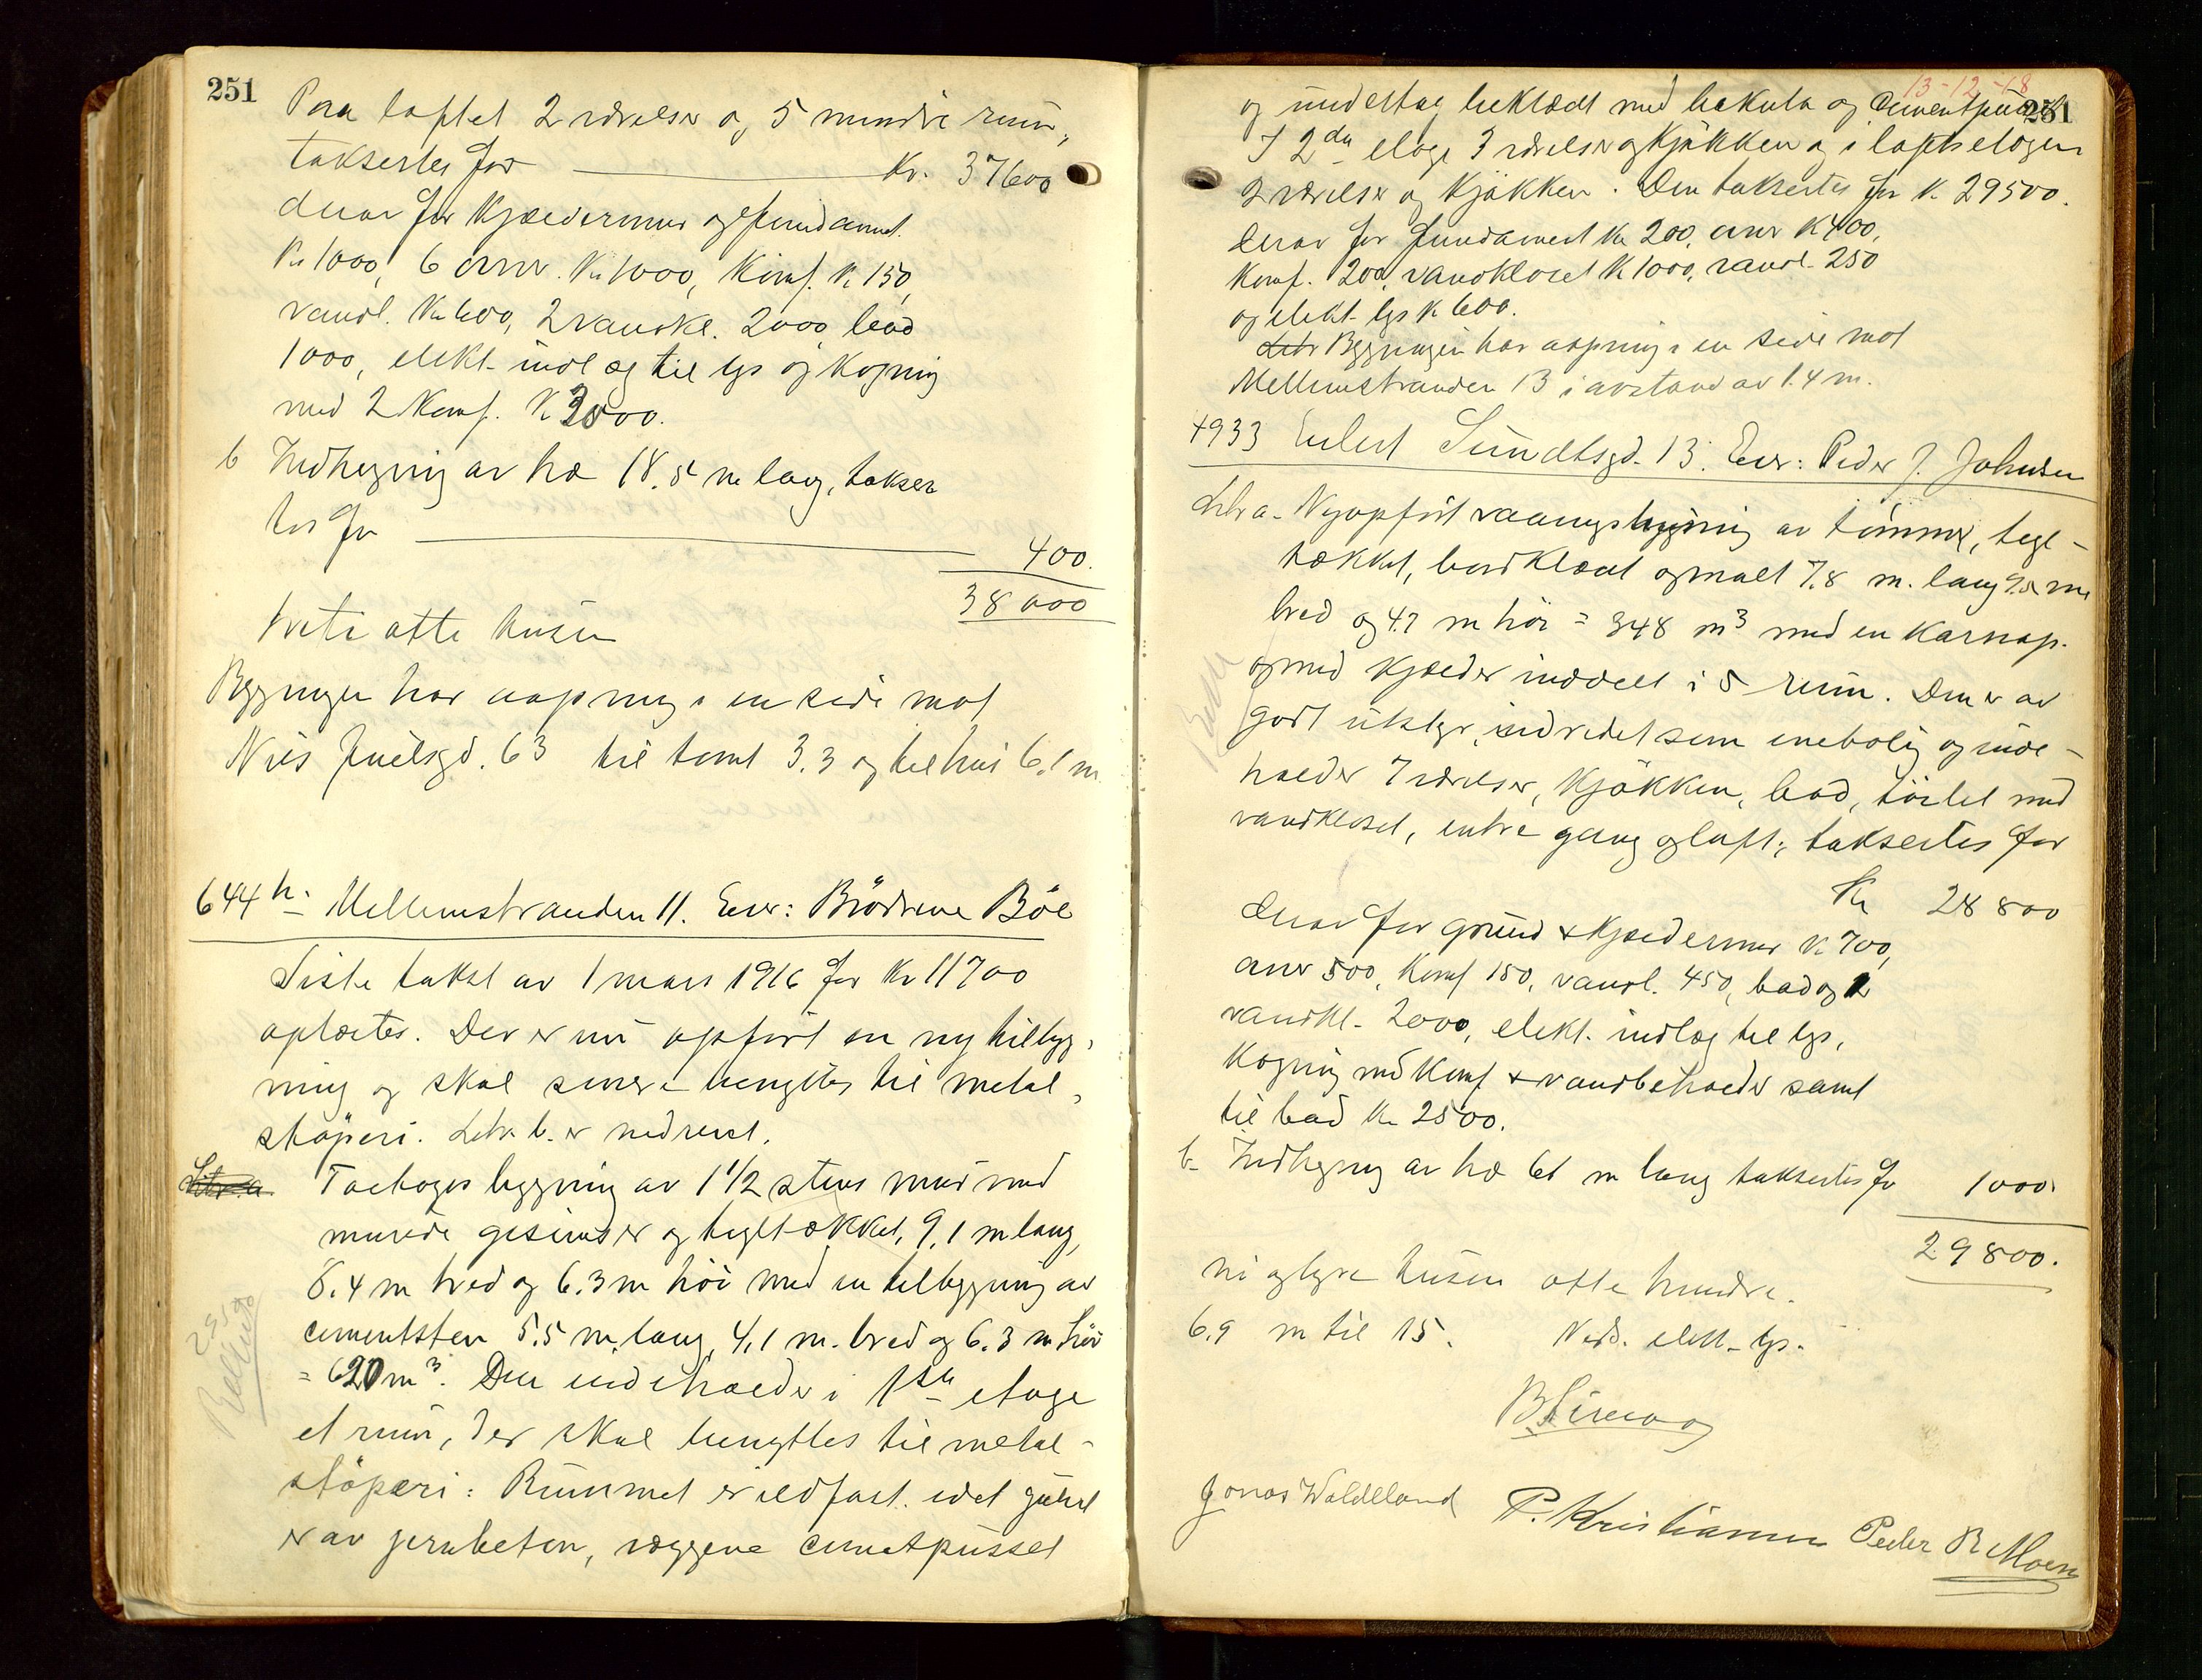 251
Paa loftet 2 værelser og 5 mindre rum,
taksertes for Kr. 37600
derav for Kjældermur og fundament
Kr 1000, 6 ovner Kr 1000, Komf. Kr 150,
vandl. Kr 600, 2 vandkl. 2000, bad
1000, elekt. indlæg til lys og Kogning
med 2 Komf. Kr 3000.
b Indhegning av træ 18.5 m lang, takser
tes for 400.
38000
treti otte tusen
Bygningen har aapning i en side mot
Nils Juelsgd. 63 til tomt 3.3 og til hus 6.1 m
644 h. Mellemstranden 11. Eier: Brødrene Böe
Siste takst av 1 mars 1916 for Kr 11700
opläses. Der er nu opført en ny tilbyg-
ning og skal senere benyttes til metal-
støperi. Litr b. er nedrevet.
Litr a. Toetages bygning av 1 1/2 stens mur med
murede gesimser og tegltækket, 9.1 m lang,
8.4 m bred og 6.3 m höi med en tilbygning av
cementsten 5.5 m. lang, 4.1 m. bred og 6.3 m höi
= 620 m³. Den indeholder i 1ste etage
et rum, der skal benyttes til metal-
støperi: Rummet er ildfast idet gulvet
er av jernbeton, væggene cementpusset
13-12-18
251
og undertag beklædt med bakula og cementpudset
I 2den etage 3 værelser og Kjøkken og i loftsetagen
2 værelser og Kjøkken. Den taksertes for Kr. 29500.
derav for fundament Kr 200, ovner Kr 400,
Komf. 200, vandkloset Kr 1000, vandl. 250
og elekt. lys Kr 600.
Litr Bygningen har aapning i en side mot
Mellemstranden 13 i avstand av 1.4 m.
4933 Eilert Sundtsgd. 13. Eier: Peder J. Johnsen
Litr a. Nyopført vaaningsbygning av tømmer, tegl-
tækket, bordklædt og malt 7.8 m. lang 9.5 m
bred og 4.7 m höi = 348 m³ med en Karnap.
og med Kjælder inddelt i 5 rum. Den er av
godt utstyr, indredet som enebolig og inde-
holder 7 værelser, Kjøkken, bad, toilet med
vandkloset, entre gang og loft; taksertes for
Kr 28800
derav for grund & Kjældermur Kr. 700,
ovner 500, Komf 150, vandl. 450, bad og 2
vandkl. 2000, elekt. indlæg til lys,
Kogning med Komf & vandbeholder samt
til bad Kr 2500.
b. Indhegning av træ 61 m lang taksertes for 1000.
29800.
ni og tyve tusen otte hundre.
6.9 m til 15. Neds. elekt. lys.
Jonas Waldeland P. Kristiansen Peder R. Moen